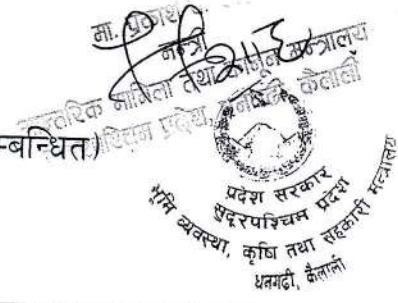 मा. प्रकाश
मन्त्री
आन्तरिक मामिला तथा कानून मन्त्रालय
प्रदेश, धनगढी कैलाली
म्बन्धित)
प्रदेश सरकार
सुदूरपश्चिम प्रदेश
भूमि व्यवस्था, कृषि तथा सहकारी मन्त्रालय
धनगढी, कैलाली